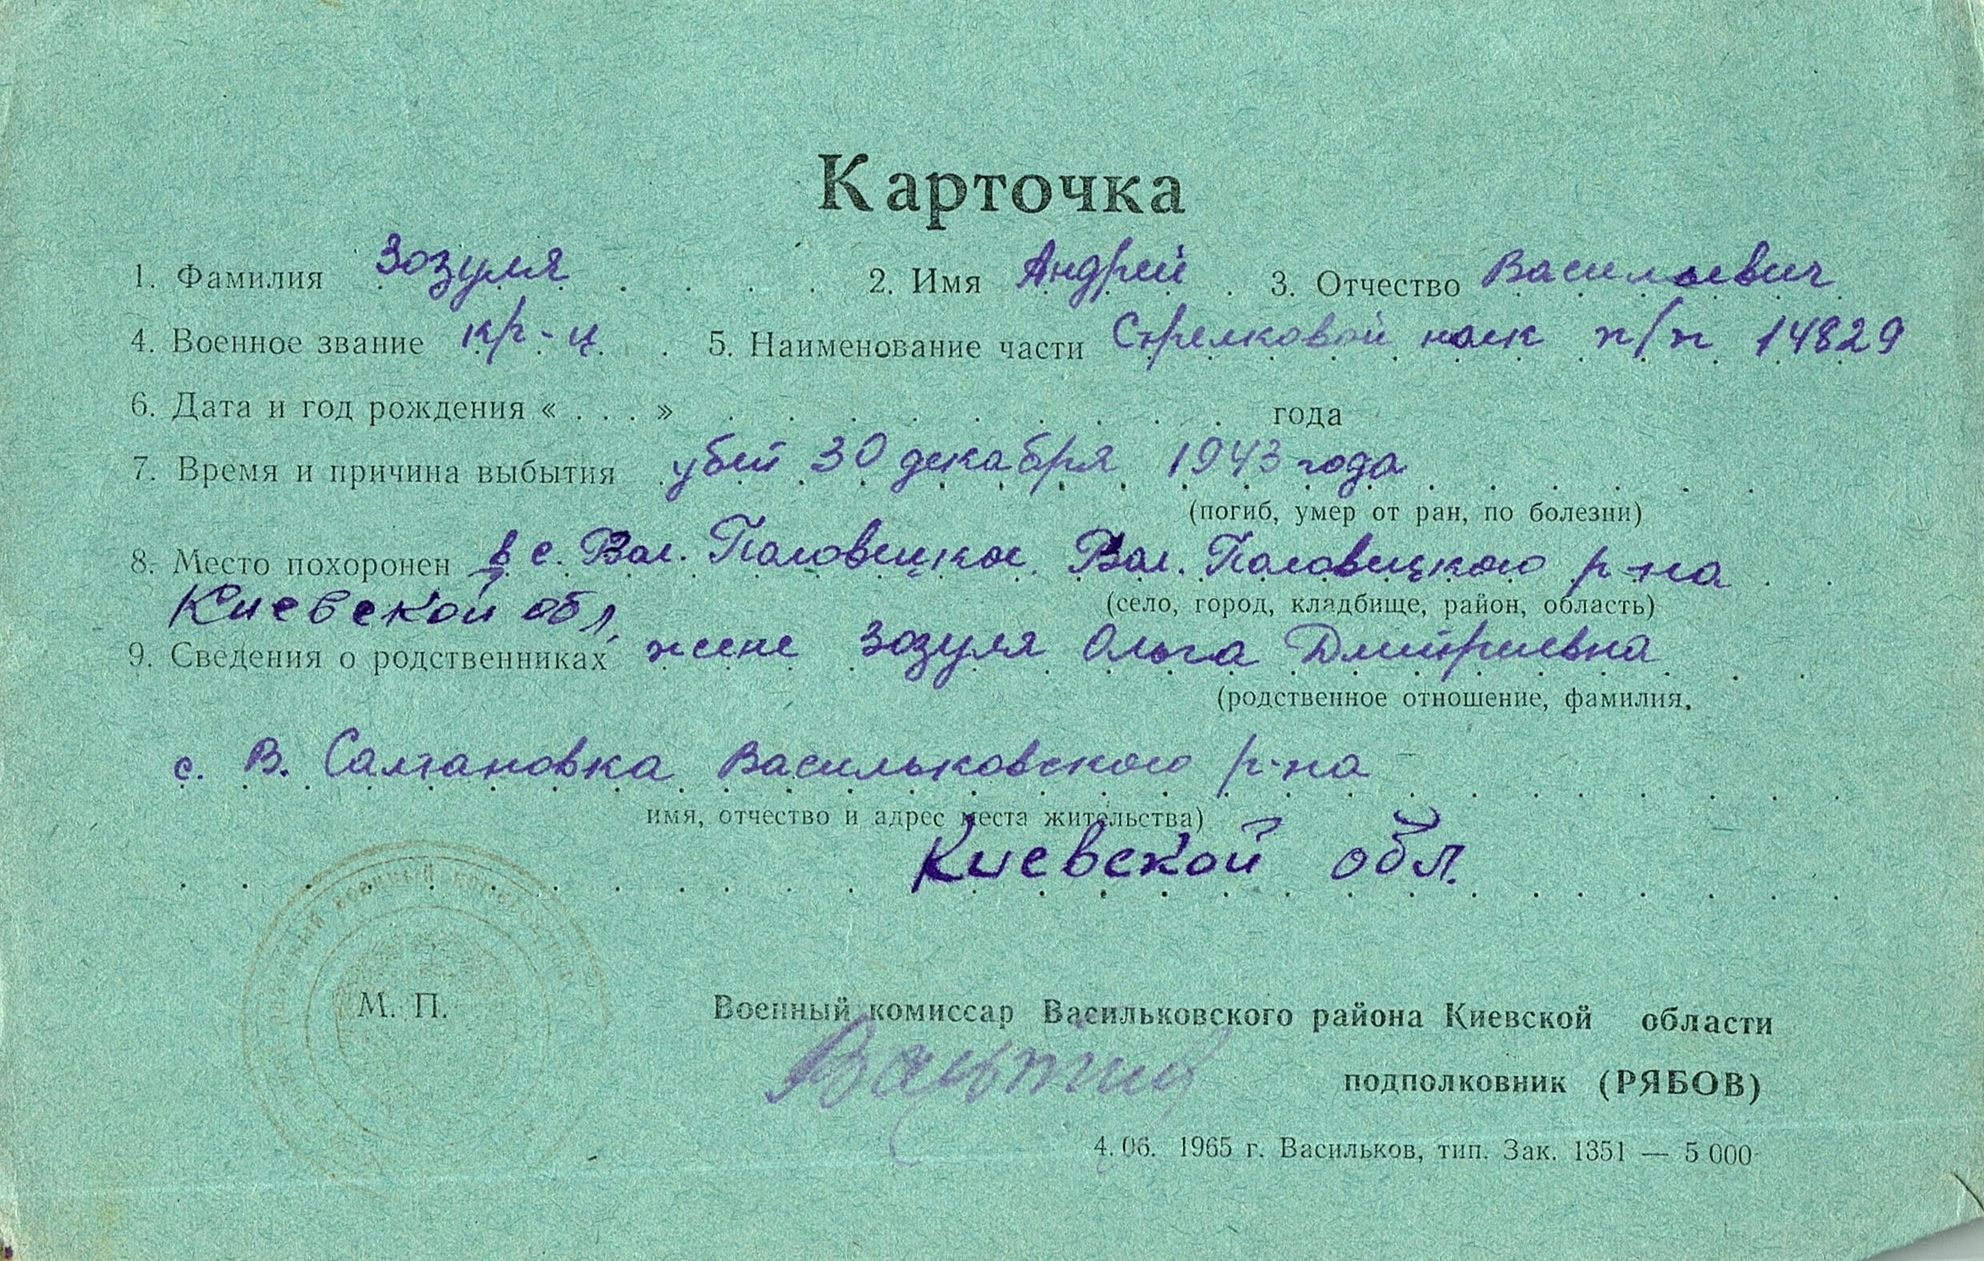 Карточка
1. Фамилия Зозуля 2. Имя Андрей 3. Отчество Васильевич
4. Военное звание кр-ц 5. Наименование части Стрелковой полк п/п 14829
6. Дата и год рождения « . . . » года
7. Время и причина выбытия убит 30 декабря 1943 года
(погиб, умер от ран, по болезни)
8. Место похоронен в с. Вол. Половецкое, Вол. Половецкого р-на
Киевской обл. (село, город, кладбище, район, область)
9. Сведения о родственниках жене Зозуля Ольга Дмитриевна
(родственное отношение, фамилия,
с. В. Салтановка Васильковского р-на
имя, отчество и адрес места жительства)
Киевской обл.
М. П.
Военный комиссар Васильковского района Киевской области
подполковник (РЯБОВ)
4.06. 1965 г. Васильков, тип. Зак. 1351 — 5 000